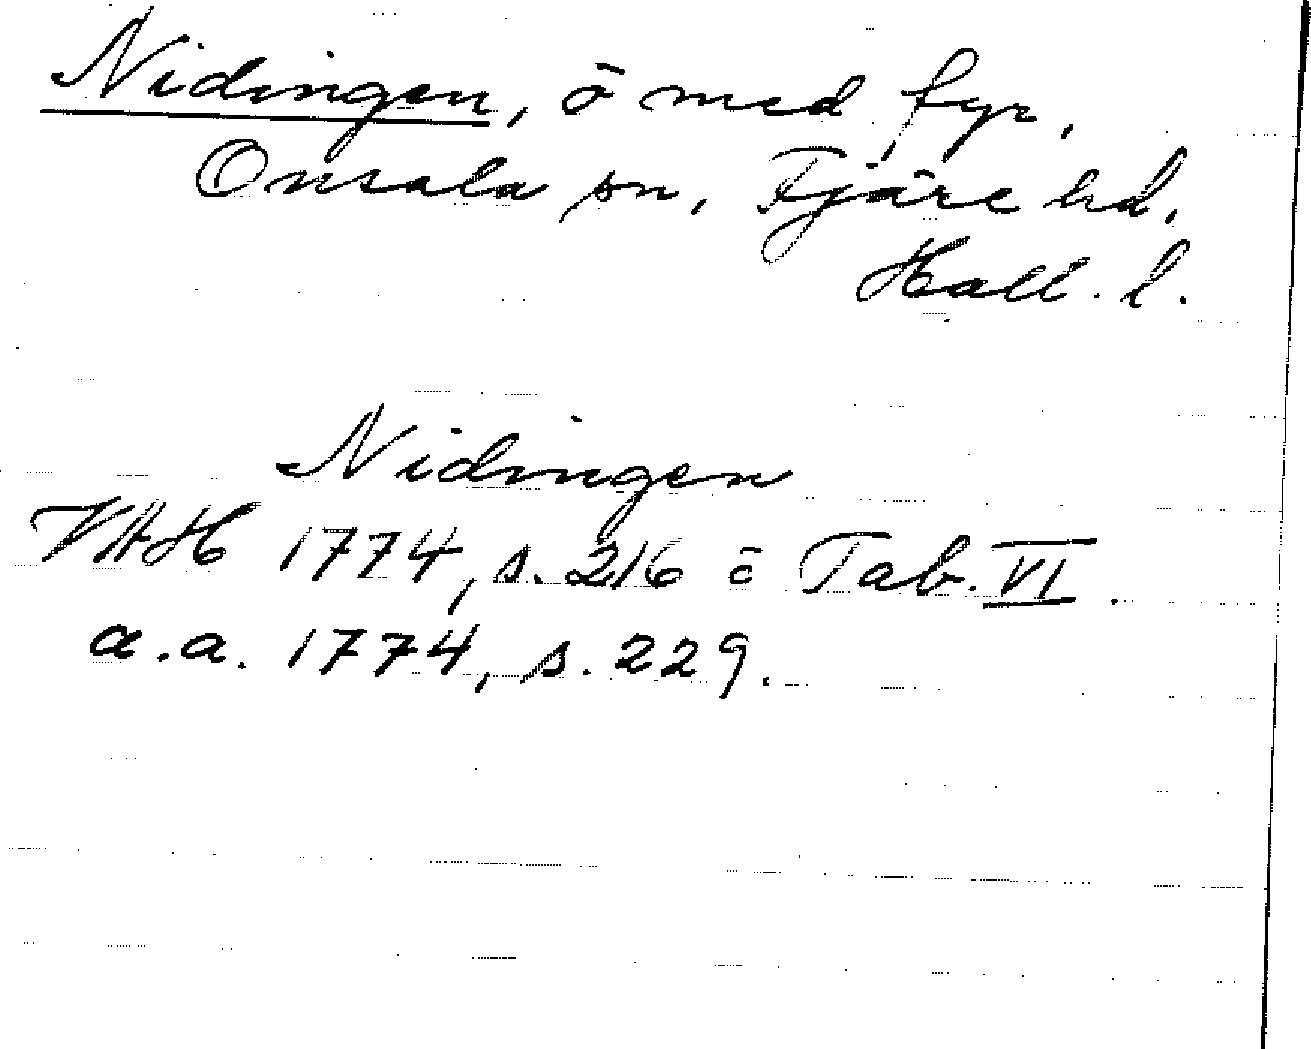 Nidingen, ö med fyr,
Onsala sn, Fjäre hd,
Hall. l.
Nidingen
VAH 1774, s. 216 o Tab. VI.
a.a. 1774, s. 229.